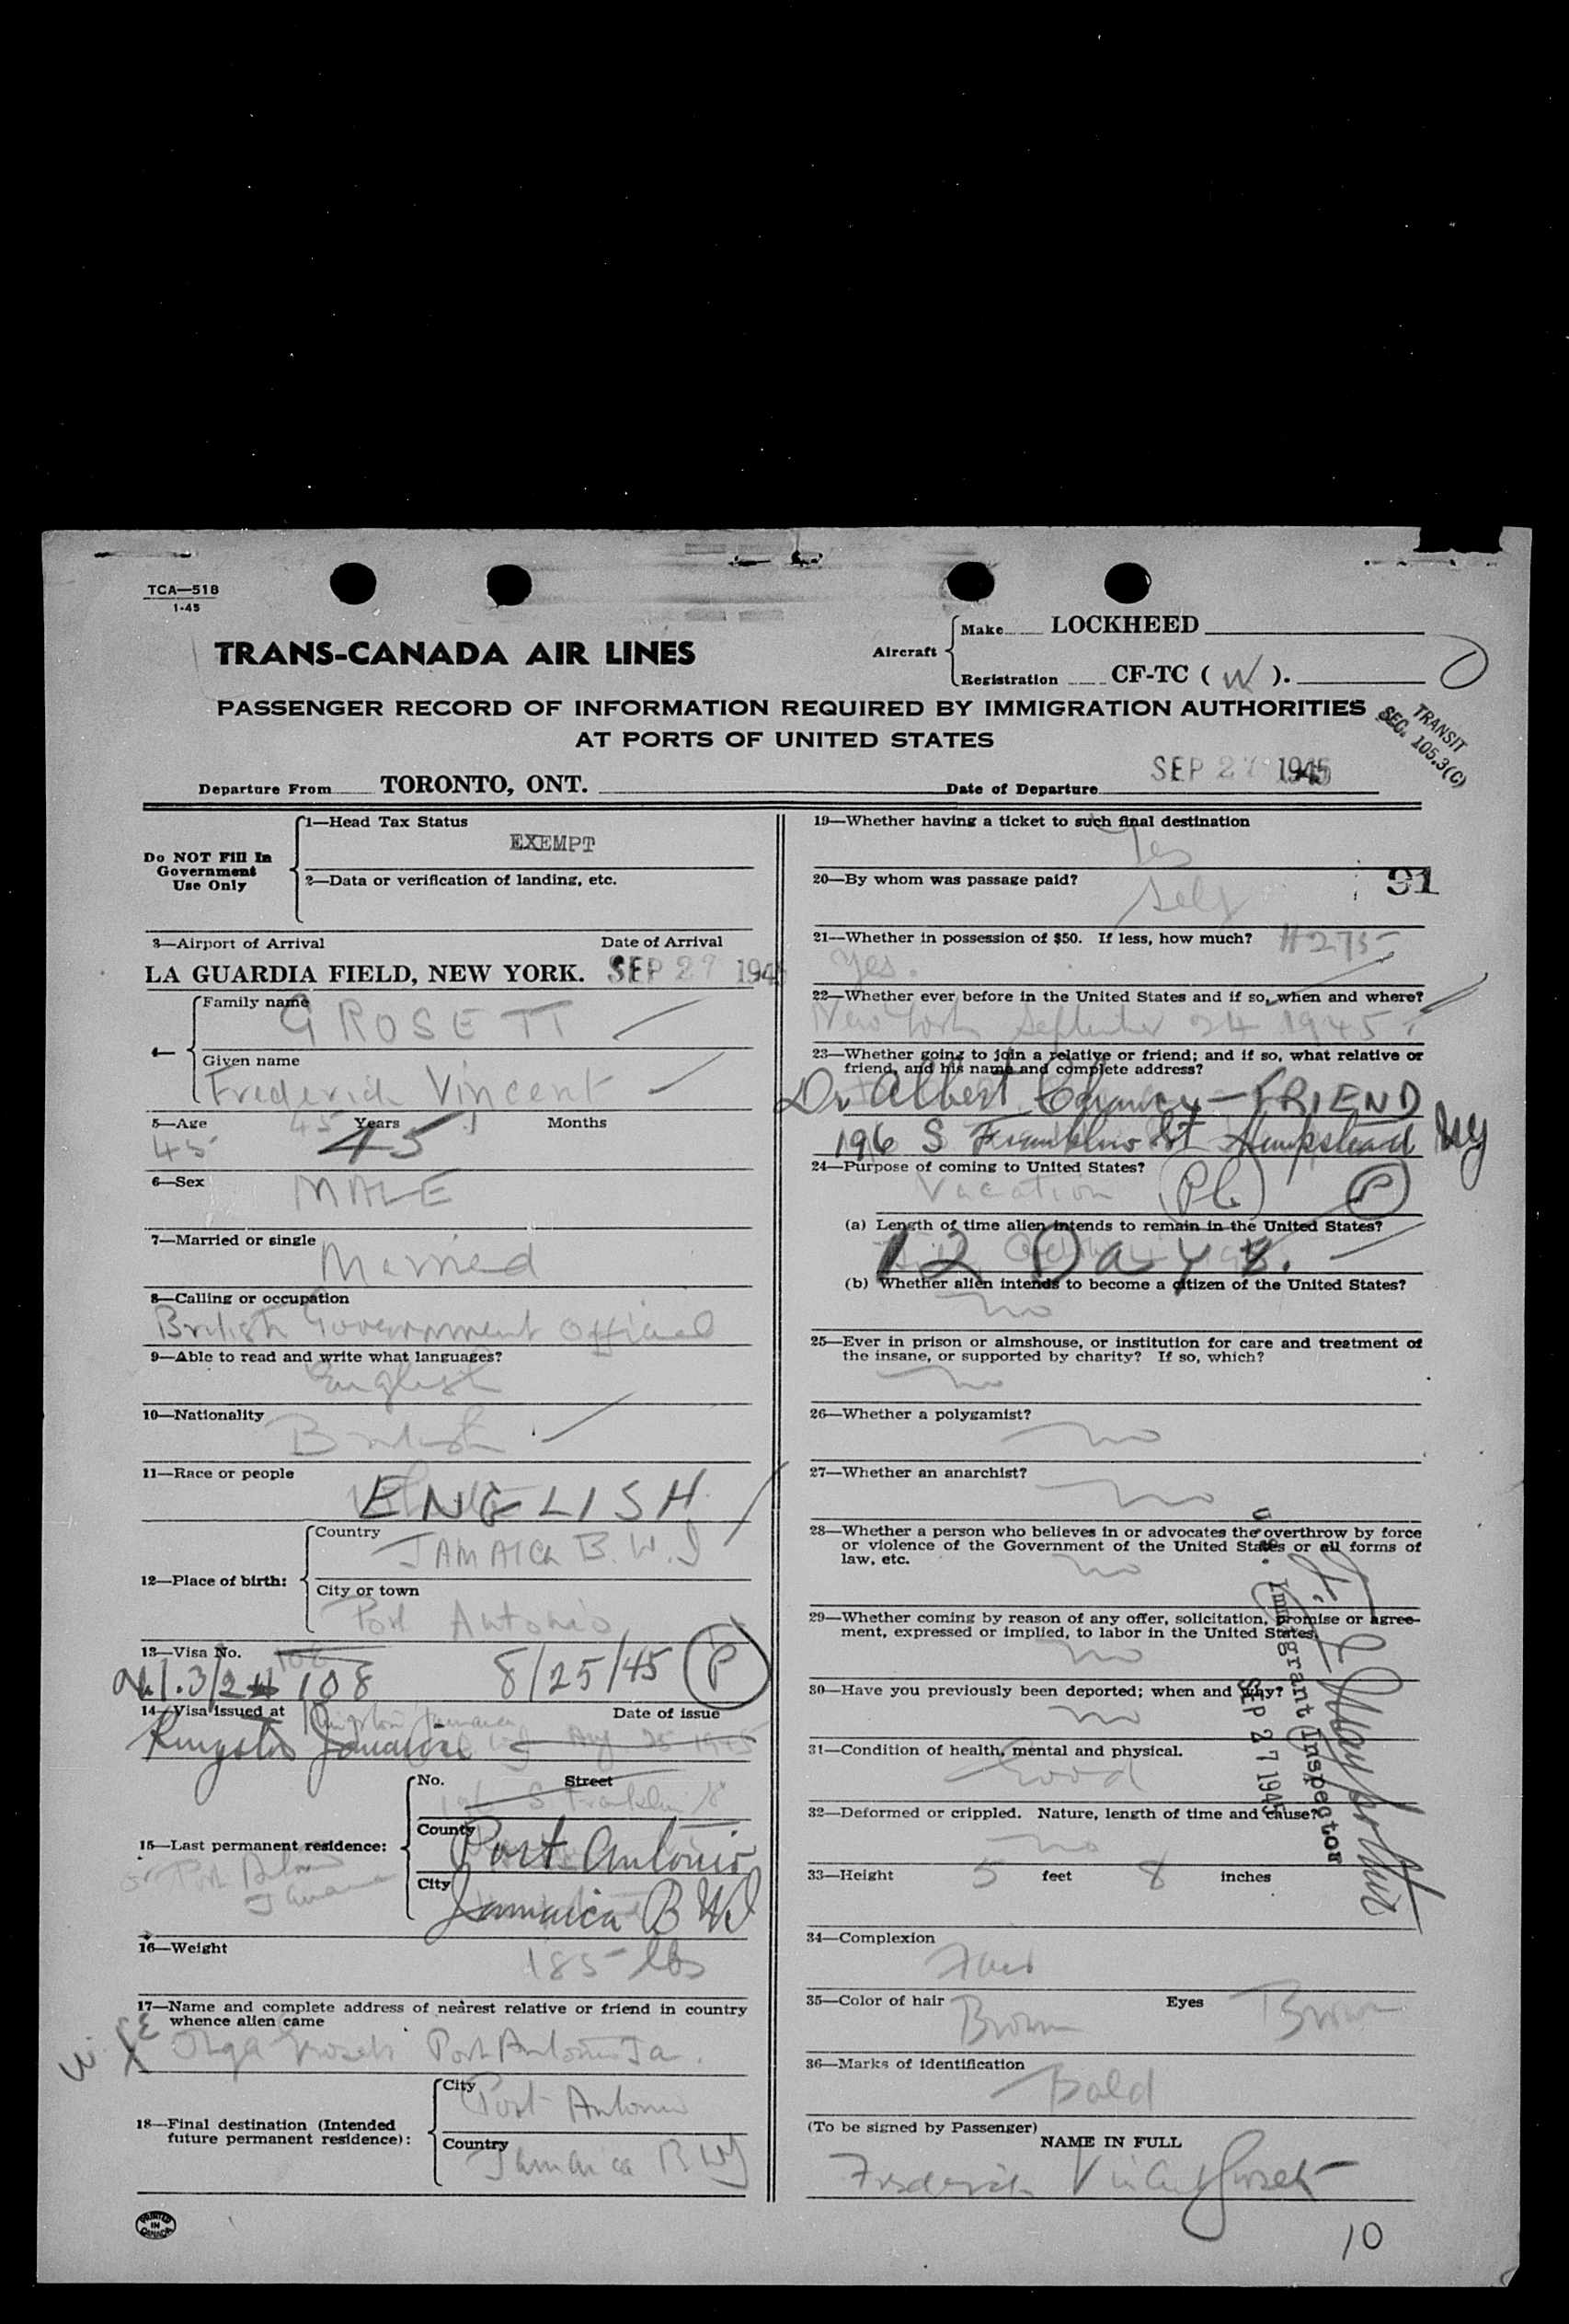 TCA—518
1-45
TRANS-CANADA AIR LINES
Aircraft
Make LOCKHEED
Registration CF-TC ( W ).
PASSENGER RECORD OF INFORMATION REQUIRED BY IMMIGRATION AUTHORITIES
AT PORTS OF UNITED STATES
TRANSIT
SEC. 105.3(C)
Departure From TORONTO, ONT.
Date of Departure SEP 27 1945
Do NOT Fill In
Government
Use Only
1—Head Tax Status
EXEMPT
2—Data or verification of landing, etc.
3—Airport of Arrival Date of Arrival
LA GUARDIA FIELD, NEW YORK. SEP 27 194
4—
Family name
GROSETT
Given name
Frederick Vincent
5—Age Years Months
45 45 45
6—Sex
MALE
7—Married or single
Married
8—Calling or occupation
British Government official
9—Able to read and write what languages?
English
10—Nationality
British
11—Race or people
ENGLISH
12—Place of birth:
Country
JAMAICA B.W.I
City or town
Port Antonio
13—Visa No.
3/2 108 8/25/45 P
14—Visa issued at Date of issue
Kingston Jamaica
Kingston Jamaica Aug 25 1945
15—Last permanent residence:
No. Street
196 S Franklin St
County
Port Antonio
City
Jamaica B W I
Port Antonio
Jamaica
16—Weight
185 lbs
17—Name and complete address of nearest relative or friend in country
whence alien came
WIFE
Olga Grosett Port Antonio Ja.
18—Final destination (Intended
future permanent residence):
City
Port Antonio
Country
Jamaica B W I
PRINTED
IN
CANADA
19—Whether having a ticket to such final destination
Yes
20—By whom was passage paid?
Self
91
21—Whether in possession of $50. If less, how much?
Yes. #275
22—Whether ever before in the United States and if so, when and where?
New York September 24 1945
23—Whether going to join a relative or friend; and if so, what relative or
friend, and his name and complete address?
Dr Albert — FRIEND
196 S Franklin St Hempstead NY
24—Purpose of coming to United States?
Vacation P
(a) Length of time alien intends to remain in the United States?
12 Days.
(b) Whether alien intends to become a citizen of the United States?
no
25—Ever in prison or almshouse, or institution for care and treatment of
the insane, or supported by charity? If so, which?
no
26—Whether a polygamist?
no
27—Whether an anarchist?
no
28—Whether a person who believes in or advocates the overthrow by force
or violence of the Government of the United States or all forms of
law, etc.
no
29—Whether coming by reason of any offer, solicitation, promise or agree-
ment, expressed or implied, to labor in the United States.
no
30—Have you previously been deported; when and why?
no
31—Condition of health, mental and physical.
Good
32—Deformed or crippled. Nature, length of time and cause?
no
33—Height 5 feet 8 inches
U. S. Immigrant Inspector
SEP 27 1945
34—Complexion
Fair
35—Color of hair Brown Eyes Brown
36—Marks of identification
Bald
(To be signed by Passenger)
NAME IN FULL
Frederick Vincent Grosett
10